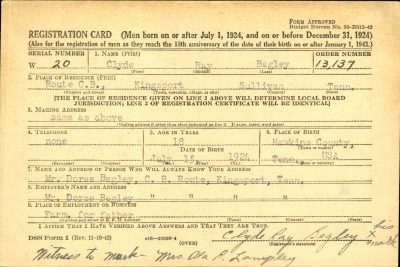 FORM APPROVED
Budget Bureau No. 33-R012-42
REGISTRATION CARD (Men born on or after July 1, 1924, and on or before December 31, 1924)
(Also for the registration of men as they reach the 18th anniversary of the date of their birth on or after January 1, 1943.)
SERIAL NUMBER 1. NAME (Print) ORDER NUMBER
W 20 Clyde Ray Begley 13,137
(First) (Middle) (Last)
2. PLACE OF RESIDENCE (Print)
Route C.B., Kingsport Sullivan Tenn.
(County) (State)
[THE PLACE OF RESIDENCE GIVEN ON LINE 2 ABOVE WILL DETERMINE LOCAL BOARD
JURISDICTION; LINE 2 OF REGISTRATION CERTIFICATE WILL BE IDENTICAL]
3. MAILING ADDRESS
same as above
4. TELEPHONE 5. AGE IN YEARS 6. PLACE OF BIRTH
none 18 Hawkins County,
DATE OF BIRTH
July 15 1924 Tenn., USA
7. NAME AND ADDRESS OF PERSON WHO WILL ALWAYS KNOW YOUR ADDRESS
Mr. Doras Begley, C. B. Route, Kingsport, Tenn.
8. EMPLOYER'S NAME AND ADDRESS
Mr. Dorse Begley
9. PLACE OF EMPLOYMENT OR BUSINESS
Farm, for father
I AFFIRM THAT I HAVE VERIFIED ABOVE ANSWERS AND THAT THEY ARE TRUE.
DSS Form 1 (Rev. 11-16-42) (OVER) Clyde Ray Begley his x mark
Witness to mark - Mrs. Ola R. Langley